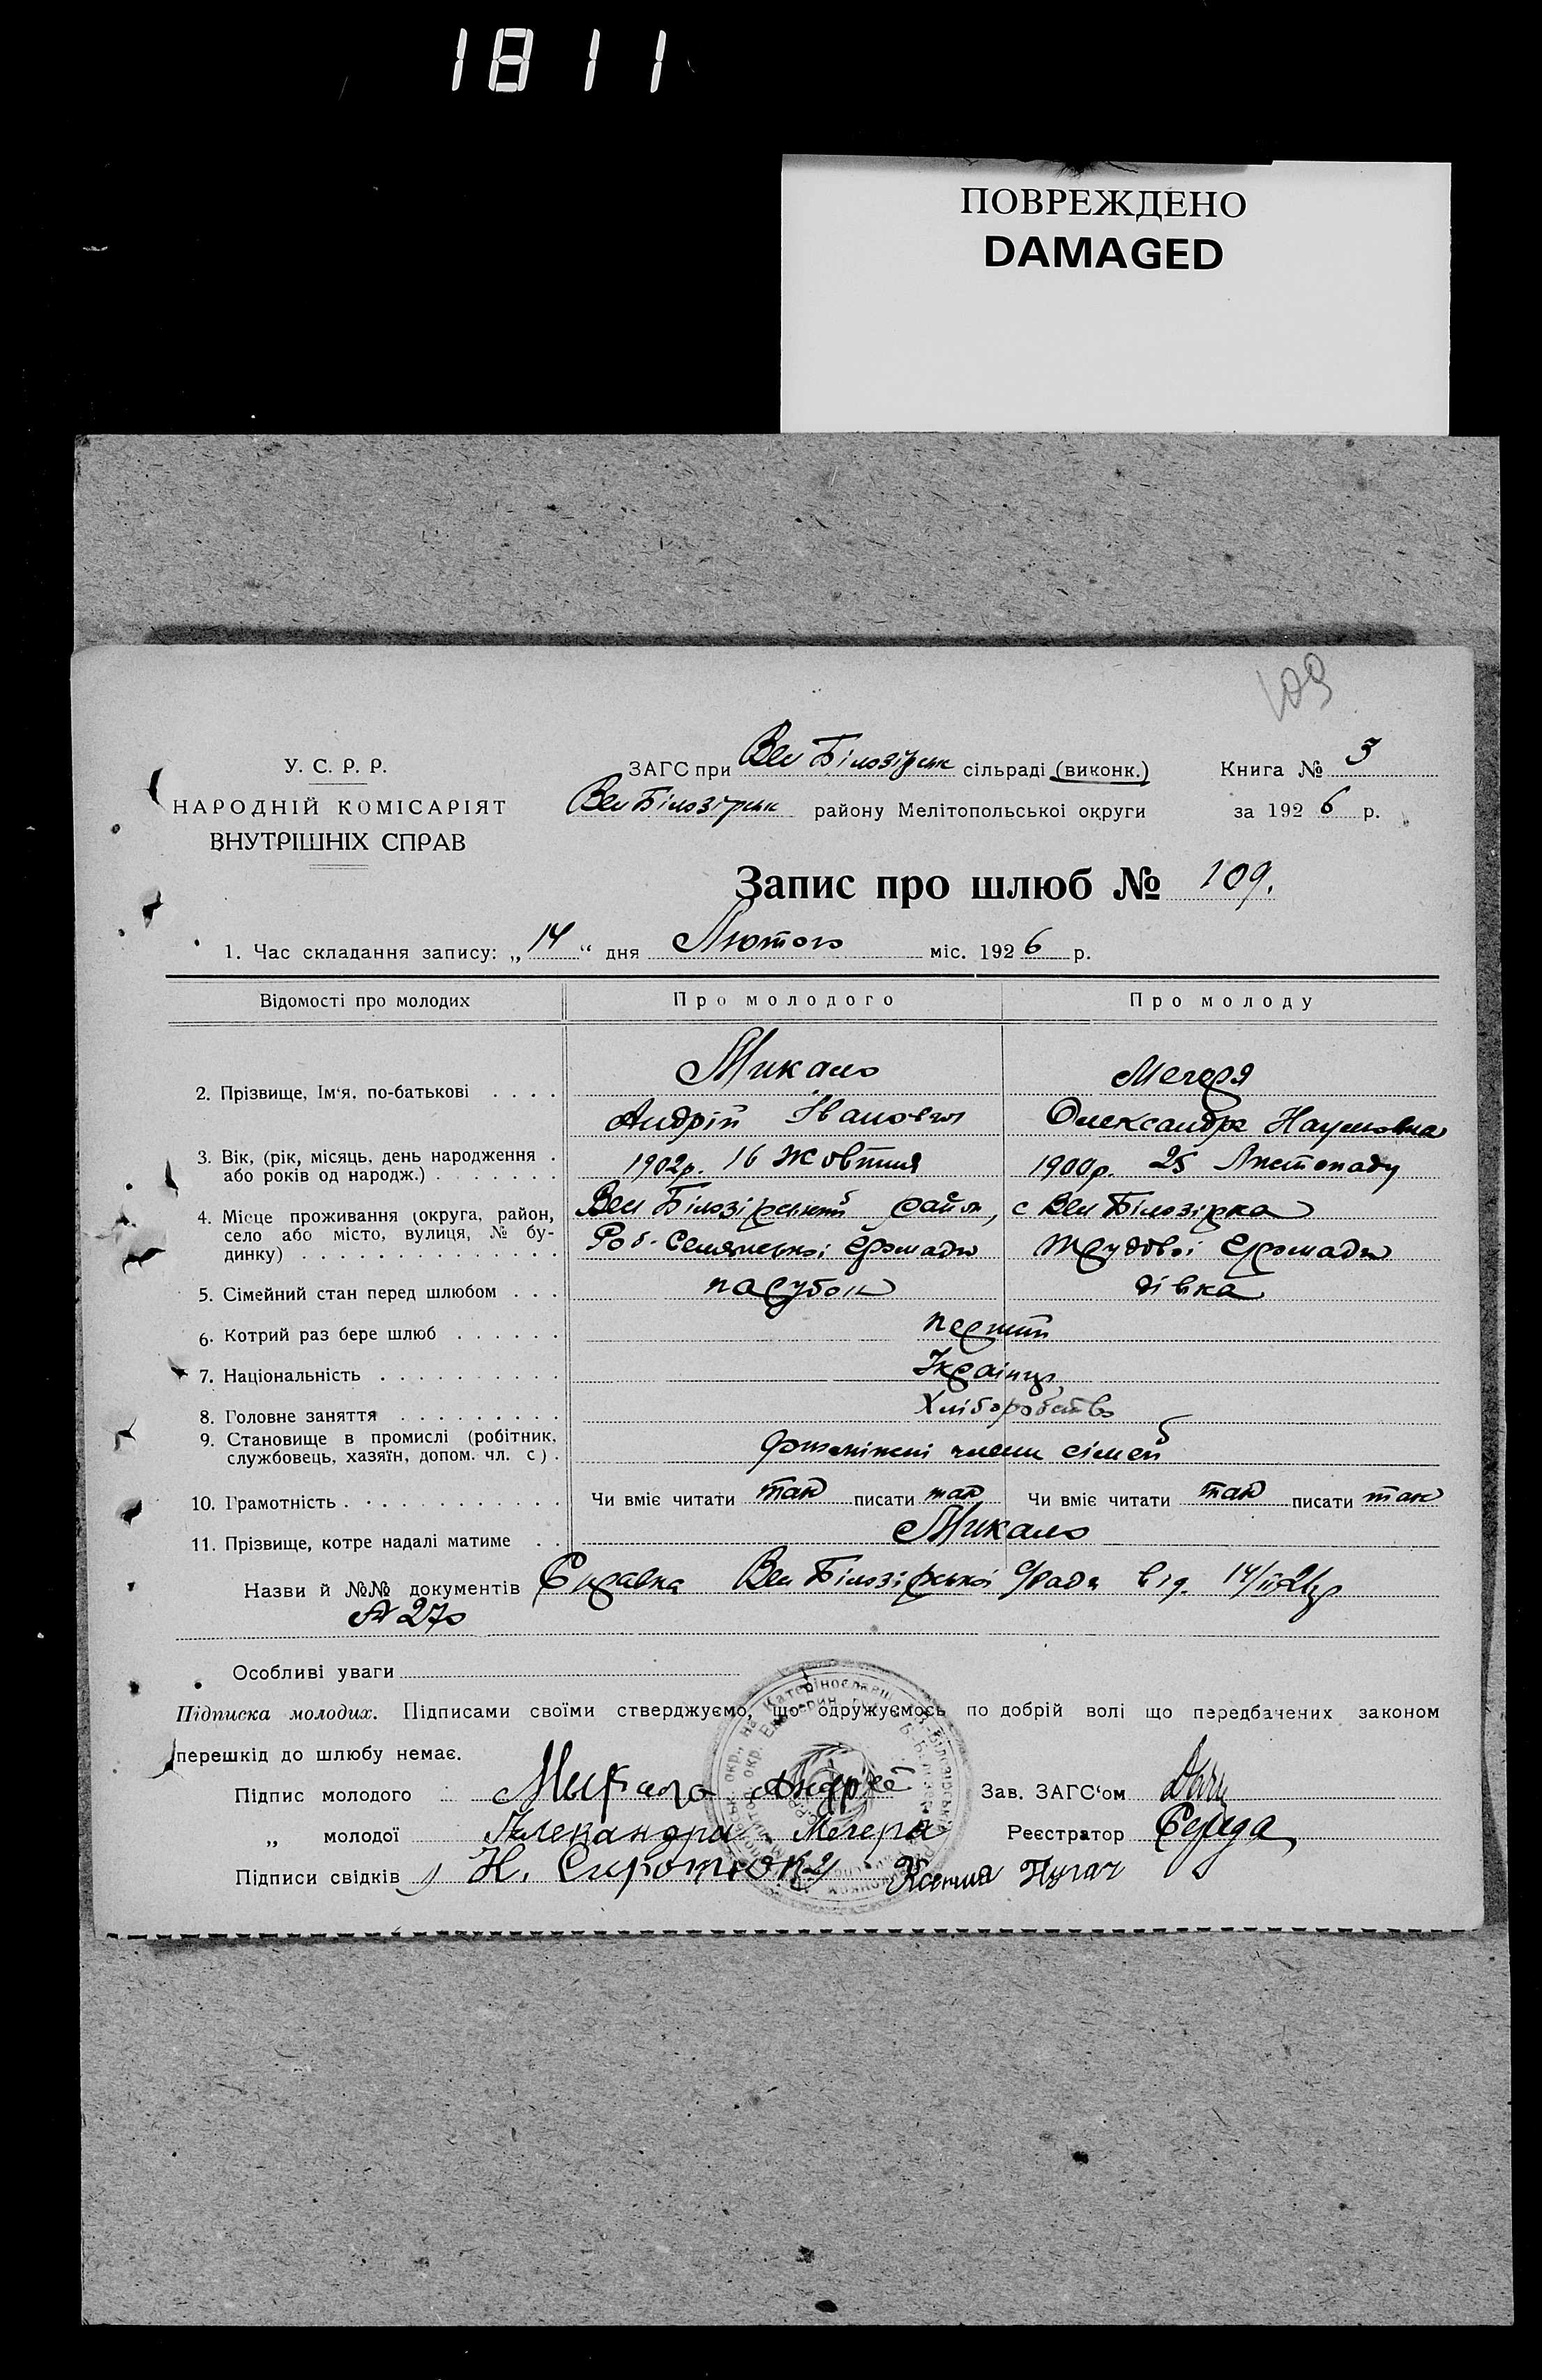 1811
ПОВРЕЖДЕНО
DAMAGED
109
У. С. Р. Р.
НАРОДНІЙ КОМІСАРІЯТ
ВНУТРІШНІХ СПРАВ
ЗАГС при Вел Білозірськ сільраді (виконк.)
Вел Білозірськ району Мелітопольської округи
Книга № 3
за 1926 р.
Запис про шлюб № 109.
1. Час складання запису: „14“ дня Лютого міс. 1926 р.
Відомості про молодих Про молодого Про молоду
2. Прізвище, Ім‘я, по-батькові . . . . Микало Мегеря
Андрій Іванович Олександра Наумовна
3. Вік, (рік, місяць, день народження . або років од народж.) . . . . . . . 1902р. 16 Жовтня 1900р. 25 Листопаду
4. Місце проживання (округа, район, Вел Білозірський район, с Вел Білозірка
село або місто, вулиця, № бу- Трудової Громади
динку) . . . . . . . . . . . . . .
5. Сімейний стан перед шлюбом . . . парубок дівка
6. Котрий раз бере шлюб . . . . . . перший
7. Національність . . . . . . . . . . Українці
8. Головне заняття . . . . . . . . . Хліборобство
9. Становище в промислі (робітник,
службовець, хазяїн, допом. чл. с.) . члени сімей
10. Грамотність . . . . . . . . . . . . Чи вміє читати так писати так Чи вміє читати так писати так
11. Прізвище, котре надалі матиме . . Микало
Назви й №№ документів Справка Вел Білозірської С/ради від 14/II
№ 270
Особливі уваги
Підписка молодих. Підписами своїми стверджуємо, що одружуємось по добрій волі що передбачених законом
перешкід до шлюбу немає.
Підпис молодого Микало Андрей Зав. ЗАГС‘ом
„ молодої Мегера Реєстратор Середа
Підписи свідків Н. Ксения Пугач